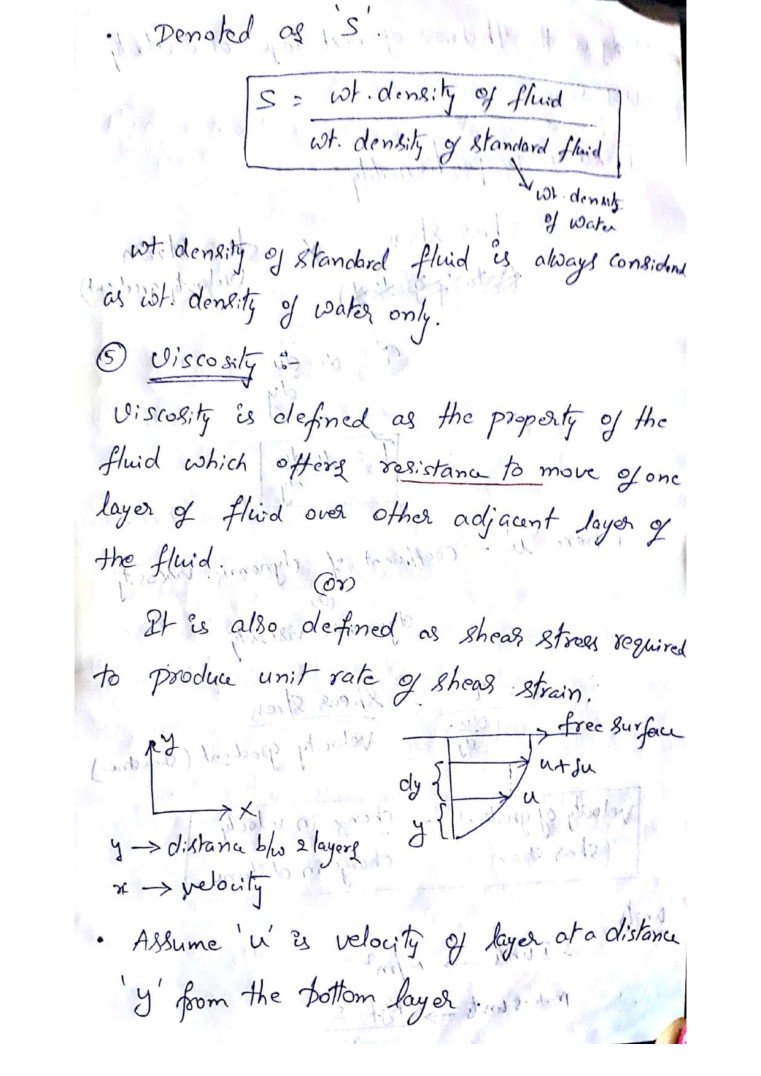 • Denoted as 's'.
S = wt. density of fluid
wt. density of standard fluid
wt. density
of water
wt. density of standard fluid is always considered
as wt. density of water only.
⑤ Viscosity :-
Viscosity is defined as the property of the
fluid which offers resistance to move of one
layer of fluid over other adjacent layer of
the fluid.
(Or)
It is also defined as shear stress required
to produce unit rate of shear strain.
y
x
y → distance b/w 2 layers
x → velocity
free surface
u+du
u
dy
y
• Assume 'u' is velocity of layer at a distance
'y' from the bottom layer.